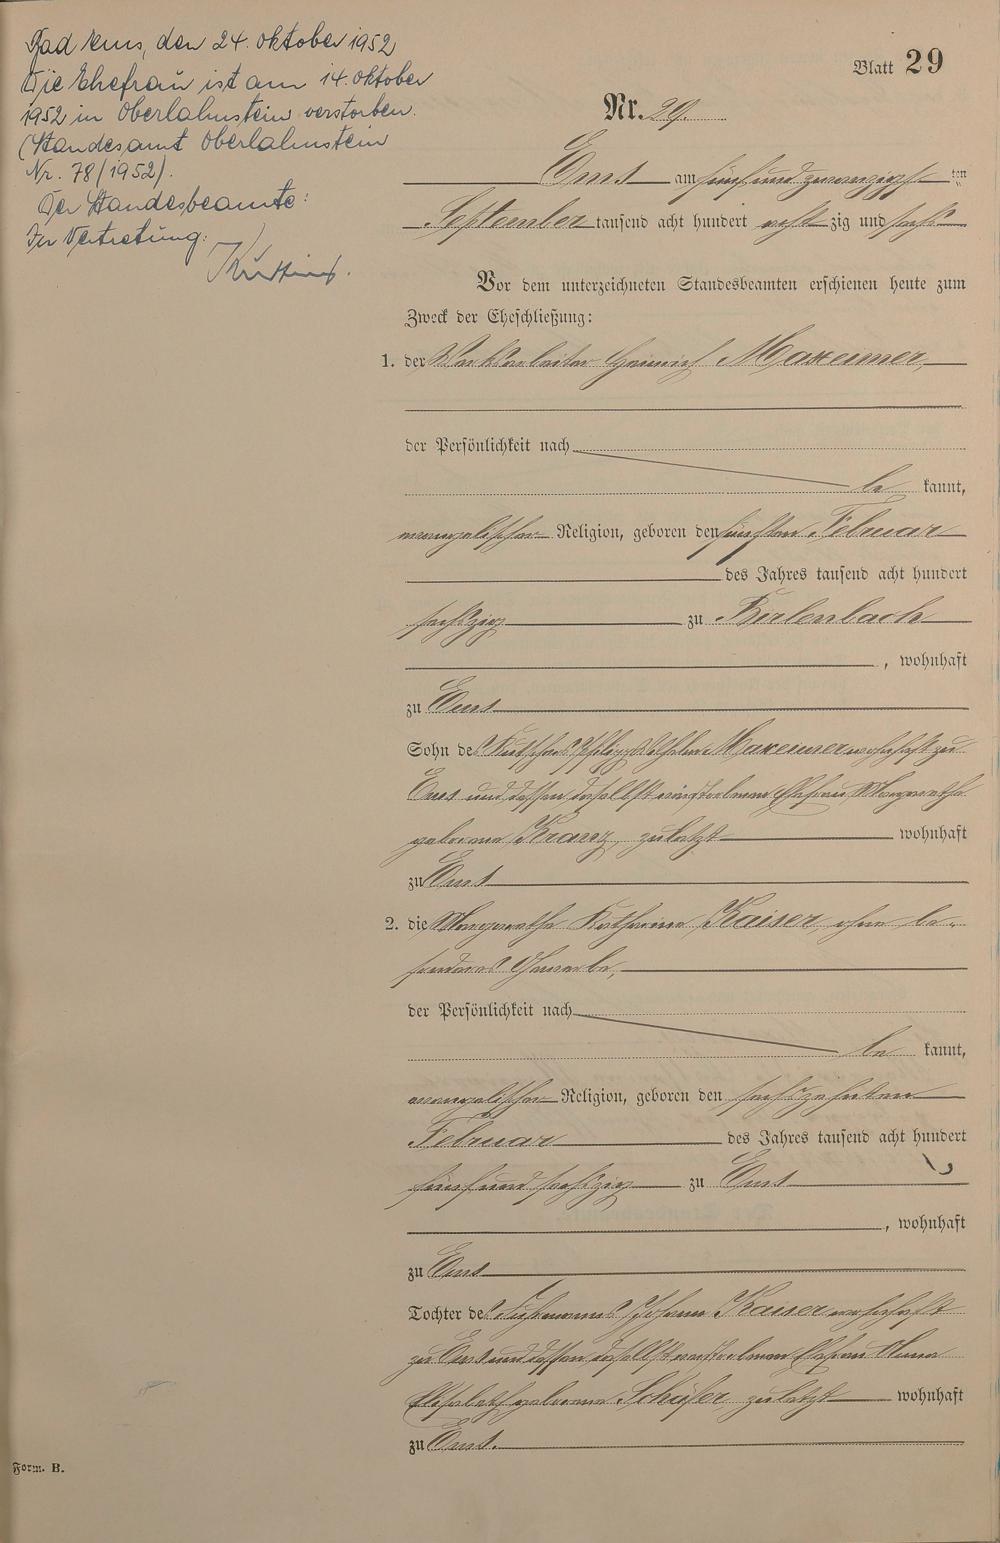 Bad Ems, den 24. Oktober 1952
Die Ehefrau ist am 14. Oktober
1952 in Oberlahnstein verstorben.
(Standesamt Oberlahnstein
Nr. 78/1952).
Der Standesbeamte:
In Vertretung:
Blatt 29
Nr. 29.
Ems am fünfundzwanzigsten
September tausend acht hundert acht zig und sechs
Vor dem unterzeichneten Standesbeamten erschienen heute zum
Zweck der Eheschließung:
1. der Heinrich Maxeimer,
der Persönlichkeit nach
be kannt,
evangelischer Religion, geboren den fünften Februar
des Jahres tausend acht hundert
sechszig zu Birlenbach
, wohnhaft
zu Ems
Sohn des Kutschers Philipp Wilhelm Maxeimer wohnhaft zu
Ems und dessen daselbst verstorbenen Ehefrau Margarethe
geborene Kranz, zuletzt wohnhaft
zu Ems
2. die Margarethe Katharine Kaiser, ohne be-
sonderes Gewerbe,
der Persönlichkeit nach
be kannt,
evangelischer Religion, geboren den sechszehnten
Februar des Jahres tausend acht hundert
fünfund sechszig zu Ems
, wohnhaft
zu Ems
Tochter des Fuhrmanns Johann Kaiser wohnhaft
zu Ems und dessen daselbst verstorbenen Ehefrau Anna
Elisabeth geborene Schäfer, zuletzt wohnhaft
zu Ems.
Form. B.